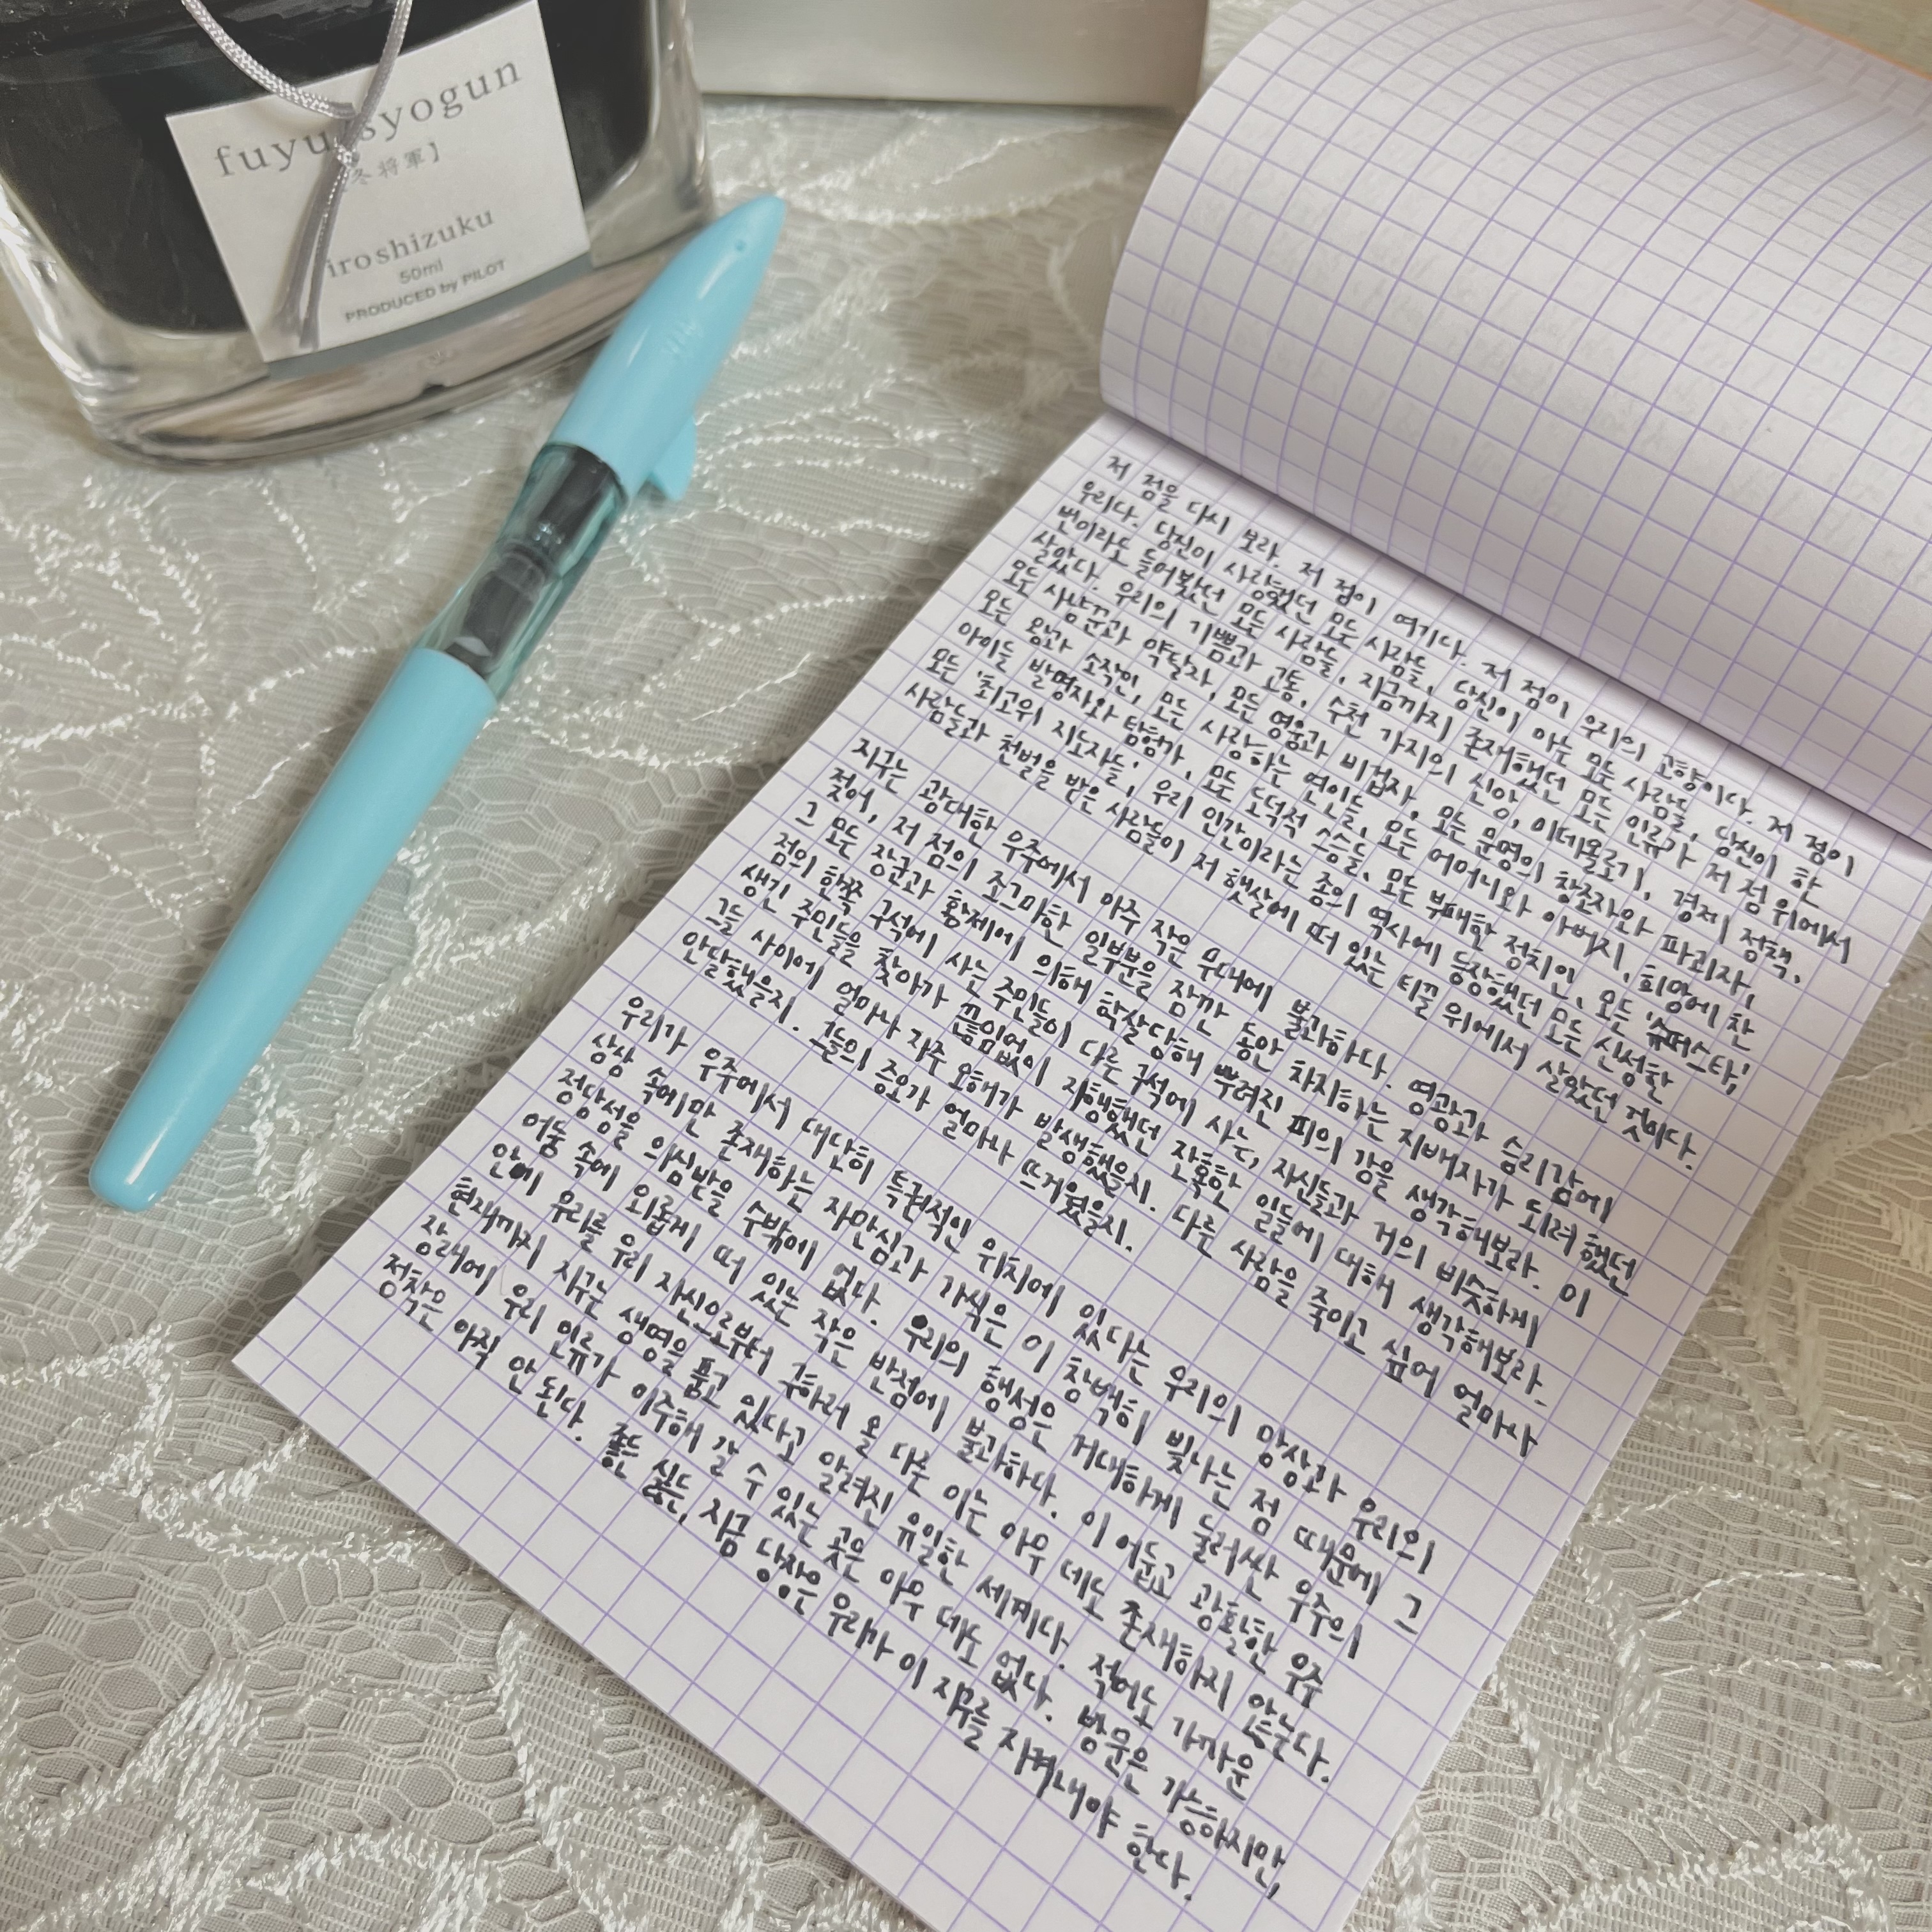 fuyu-syogun
冬将軍】
iroshizuku
50ml
PRODUCED by PILOT
저 점을 다시 보라. 저 점이 여기다. 저 점이 우리의 고향이다. 저 점이
우리다. 당신이 사랑했던 모든 사람들, 당신이 아는 모든 사람들, 당신이 한
번이라도 들어봤던 모든 사람들, 지금까지 존재했던 모든 인류가 저 점 위에서
살았다. 우리의 기쁨과 고통, 수천 가지의 신앙, 이데올로기, 경제 정책,
모든 사냥꾼과 약탈자, 모든 영웅과 비겁자, 모든 문명의 창조자와 파괴자,
모든 왕과 소작인, 모든 사랑하는 연인들, 모든 어머니와 아버지, 희망에 찬
아이들 발명자와 탐험가, 모든 도덕적 스승들, 모든 부패한 정치인, 모든 '슈퍼스타',
모든 '최고위 지도자들', 우리 인간이라는 종의 역사에 등장했던 모든 신성한
사람들과 천벌을 받은 사람들이 저 햇살에 떠 있는 티끌 위에서 살았던 것이다.
지구는 광대한 우주에서 아주 작은 무대에 불과하다. 영광과 승리감에
젖어, 저 점의 조그마한 일부분을 잠깐 동안 차지하는 지배자가 되려 했던
그 모든 장군과 황제에 의해 학살당해 뿌려진 피의 강을 생각해보라. 이
점의 한쪽 구석에 사는 주민들이 다른 구석에 사는, 자신들과 거의 비슷하게
생긴 주민들을 찾아가 끊임없이 자행했던 잔혹한 일들에 대해 생각해보라.
그들 사이에 얼마나 자주 오해가 발생했을지. 다른 사람을 죽이고 싶어 얼마나
안달했을지. 그들의 증오가 얼마나 뜨거웠을지.
우리가 우주에서 대단히 특권적인 위치에 있다는 우리의 망상과 우리의
상상 속에만 존재하는 자만심과 가식은 이 창백히 빛나는 점 때문에 그
정당성을 의심받을 수밖에 없다. 우리의 행성은 거대하게 둘러싼 우주의
어둠 속에 외롭게 떠 있는 작은 반점에 불과하다. 이 어둡고 광활한 우주
안에 우리를 우리 자신으로부터 구하러 올 다른 이는 아무 데도 존재하지 않는다.
현재까지 지구는 생명을 품고 있다고 알려진 유일한 세계다. 적어도 가까운
장래에 우리 인류가 이주해 갈 수 있는 곳은 아무 데도 없다. 방문은 가능하지만,
정착은 아직 안 된다. 좋든 싫든, 지금 당장은 우리가 이 지구를 지켜내야 한다.